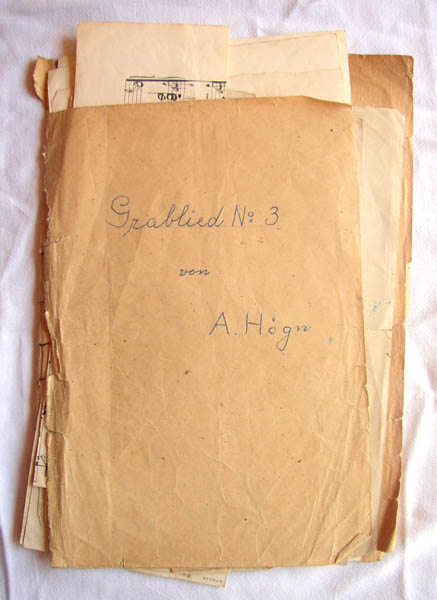 Grablied No 3
von
A. Högn